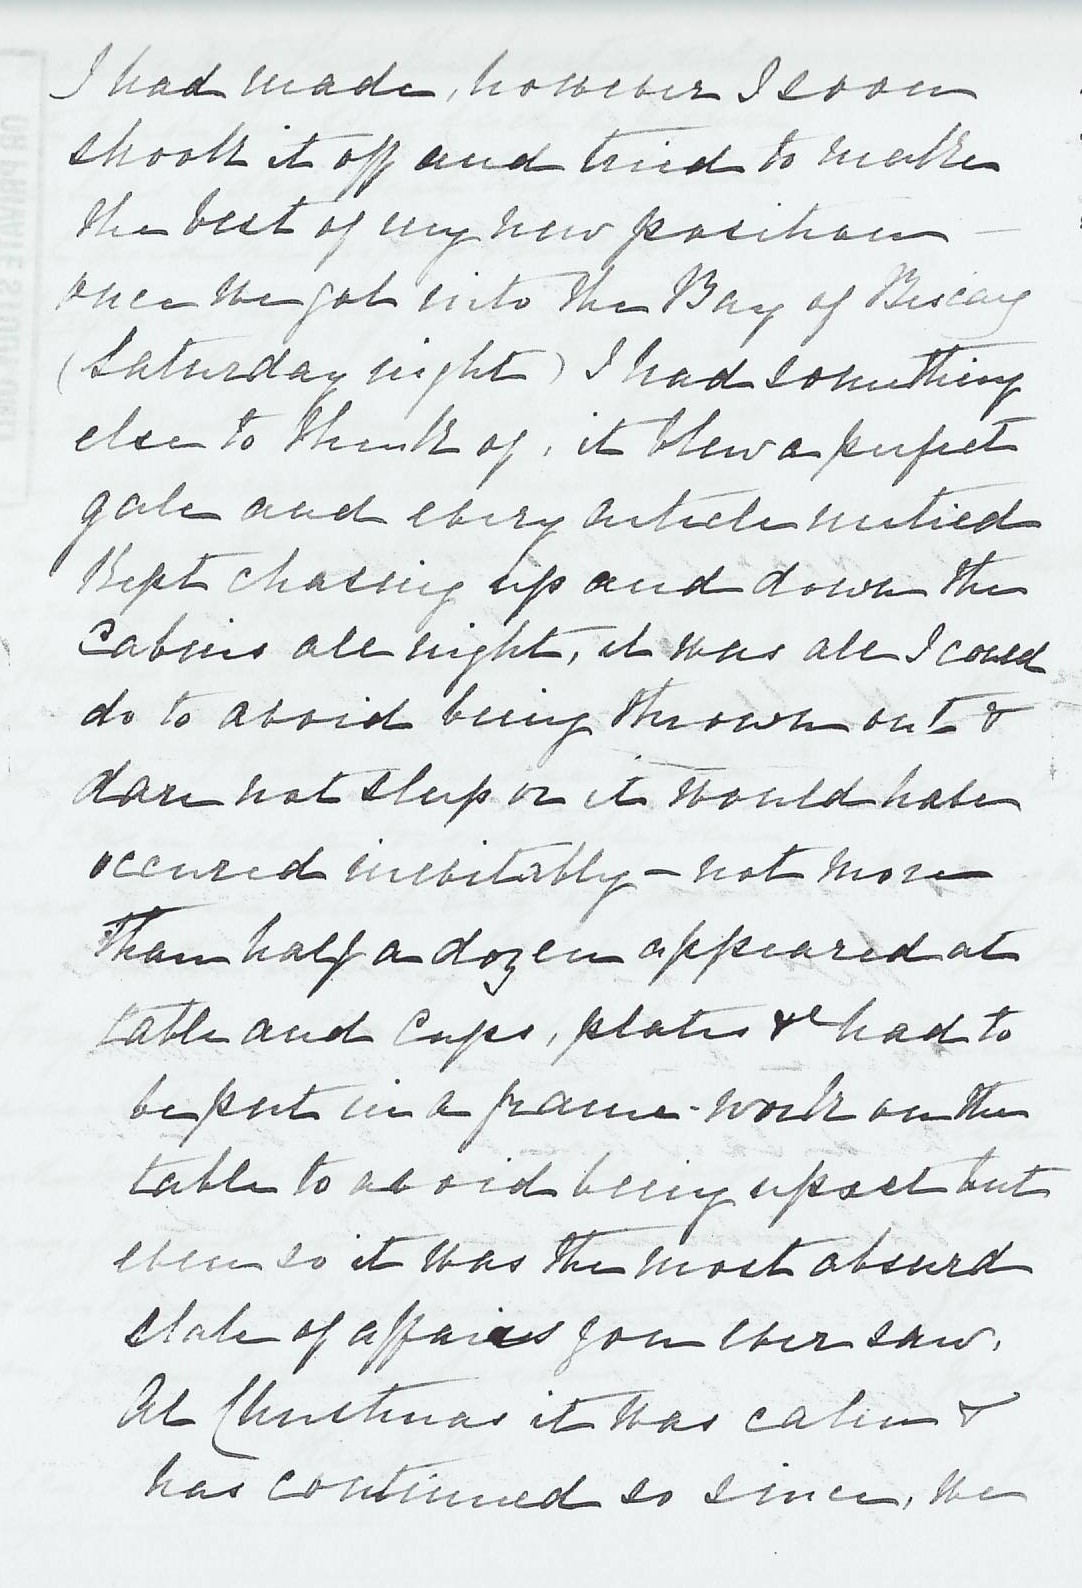 I had made, however I soon
shook it off and tried to make
the best of my new position —
once we got into the Bay of Biscay
(Saturday night) I had something
else to think of, it blew a perfect
gale and every article untied
kept chasing up and down the
Cabins all night, it was all I could
do to avoid being thrown out &
dare not sleep or it would have
occured inevitably — not more
than half a dozen appeared at
table and cups, plates &c had to
be put in a frame-work on the
table to avoid being upset but
even so it was the most absurd
state of affairs you ever saw.
At Christmas it was calm &
has continued so since, we